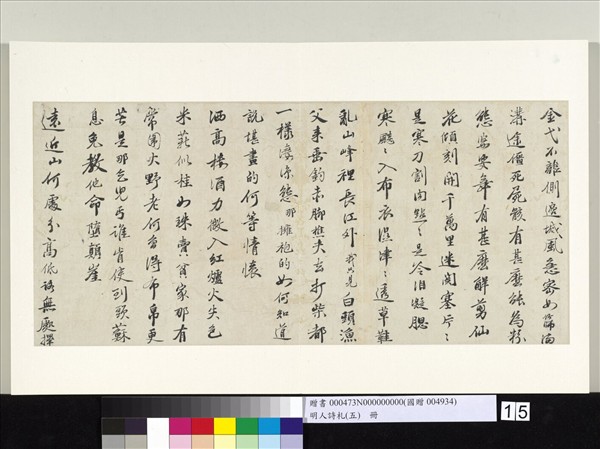 金戈不離側邊城風急密如篩滿
溝途僵死屍骸有甚麼能為粉
態當要舞有甚麼解剪仙
花傾刻開千萬里迷関塞片々
是寒刀割面點々是冷泪凝腮
寒颼々入布衣濕津々透草鞋
亂山峰裡長江外我只見白頭漁
父来垂釣赤脚樵夫去打柴都
一樣凄凉態那擁袍的如何知道
説堪畫的何等情懷
洒高樓酒力微入紅爐火失色
米似桂如珠賣貧家那有
火野老何曾得布帛更
苦是那乞兒與誰肯使到蘇
息免教他命墮顛崖
遠近山何處分高低路無
贈書 000473N000000000(國贈 004934)
明人詩札(五) 冊
15